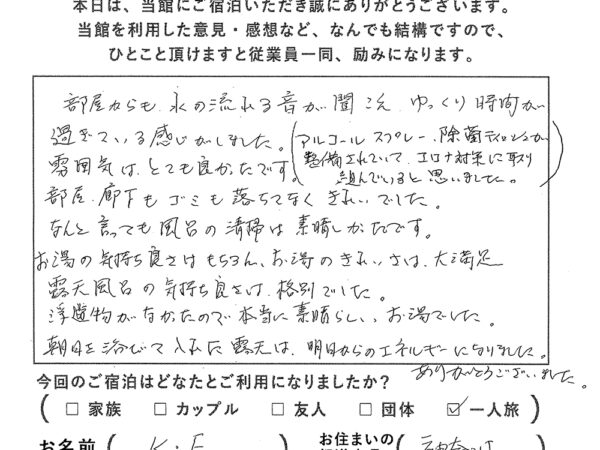 本日は、当館にご宿泊いただき誠にありがとうございます。
当館を利用した意見・感想など、なんでも結構ですので、
ひとこと頂けますと従業員一同、励みになります。
部屋からも水の流れる音が聞こえ、ゆっくり時間が
過ぎている感じがしました。(アルコールスプレー、除菌ティッシュが
整備されていて、コロナ対策に取り
組んでいると思いました。)
雰囲気は、とても良かったです。
部屋、廊下もゴミも落ちてなくきれいでした。
なんと言っても風呂の清掃は素晴しかたです。
お湯の気持ち良さはもちろん、お湯のきれいさは、大満足
露天風呂の気持ち良さは、格別でした。
浮遊物がなかたので本当に素晴らしい、お湯でした。
朝日を浴びて入れた露天は、明日からのエネルギーになりました。
ありがとうございました。
今回のご宿泊はどなたとご利用になりましたか?
( □ 家族 □ カップル □ 友人 □ 団体 ☑ 一人旅 )
お名前 ( K.F ) お住まいの (